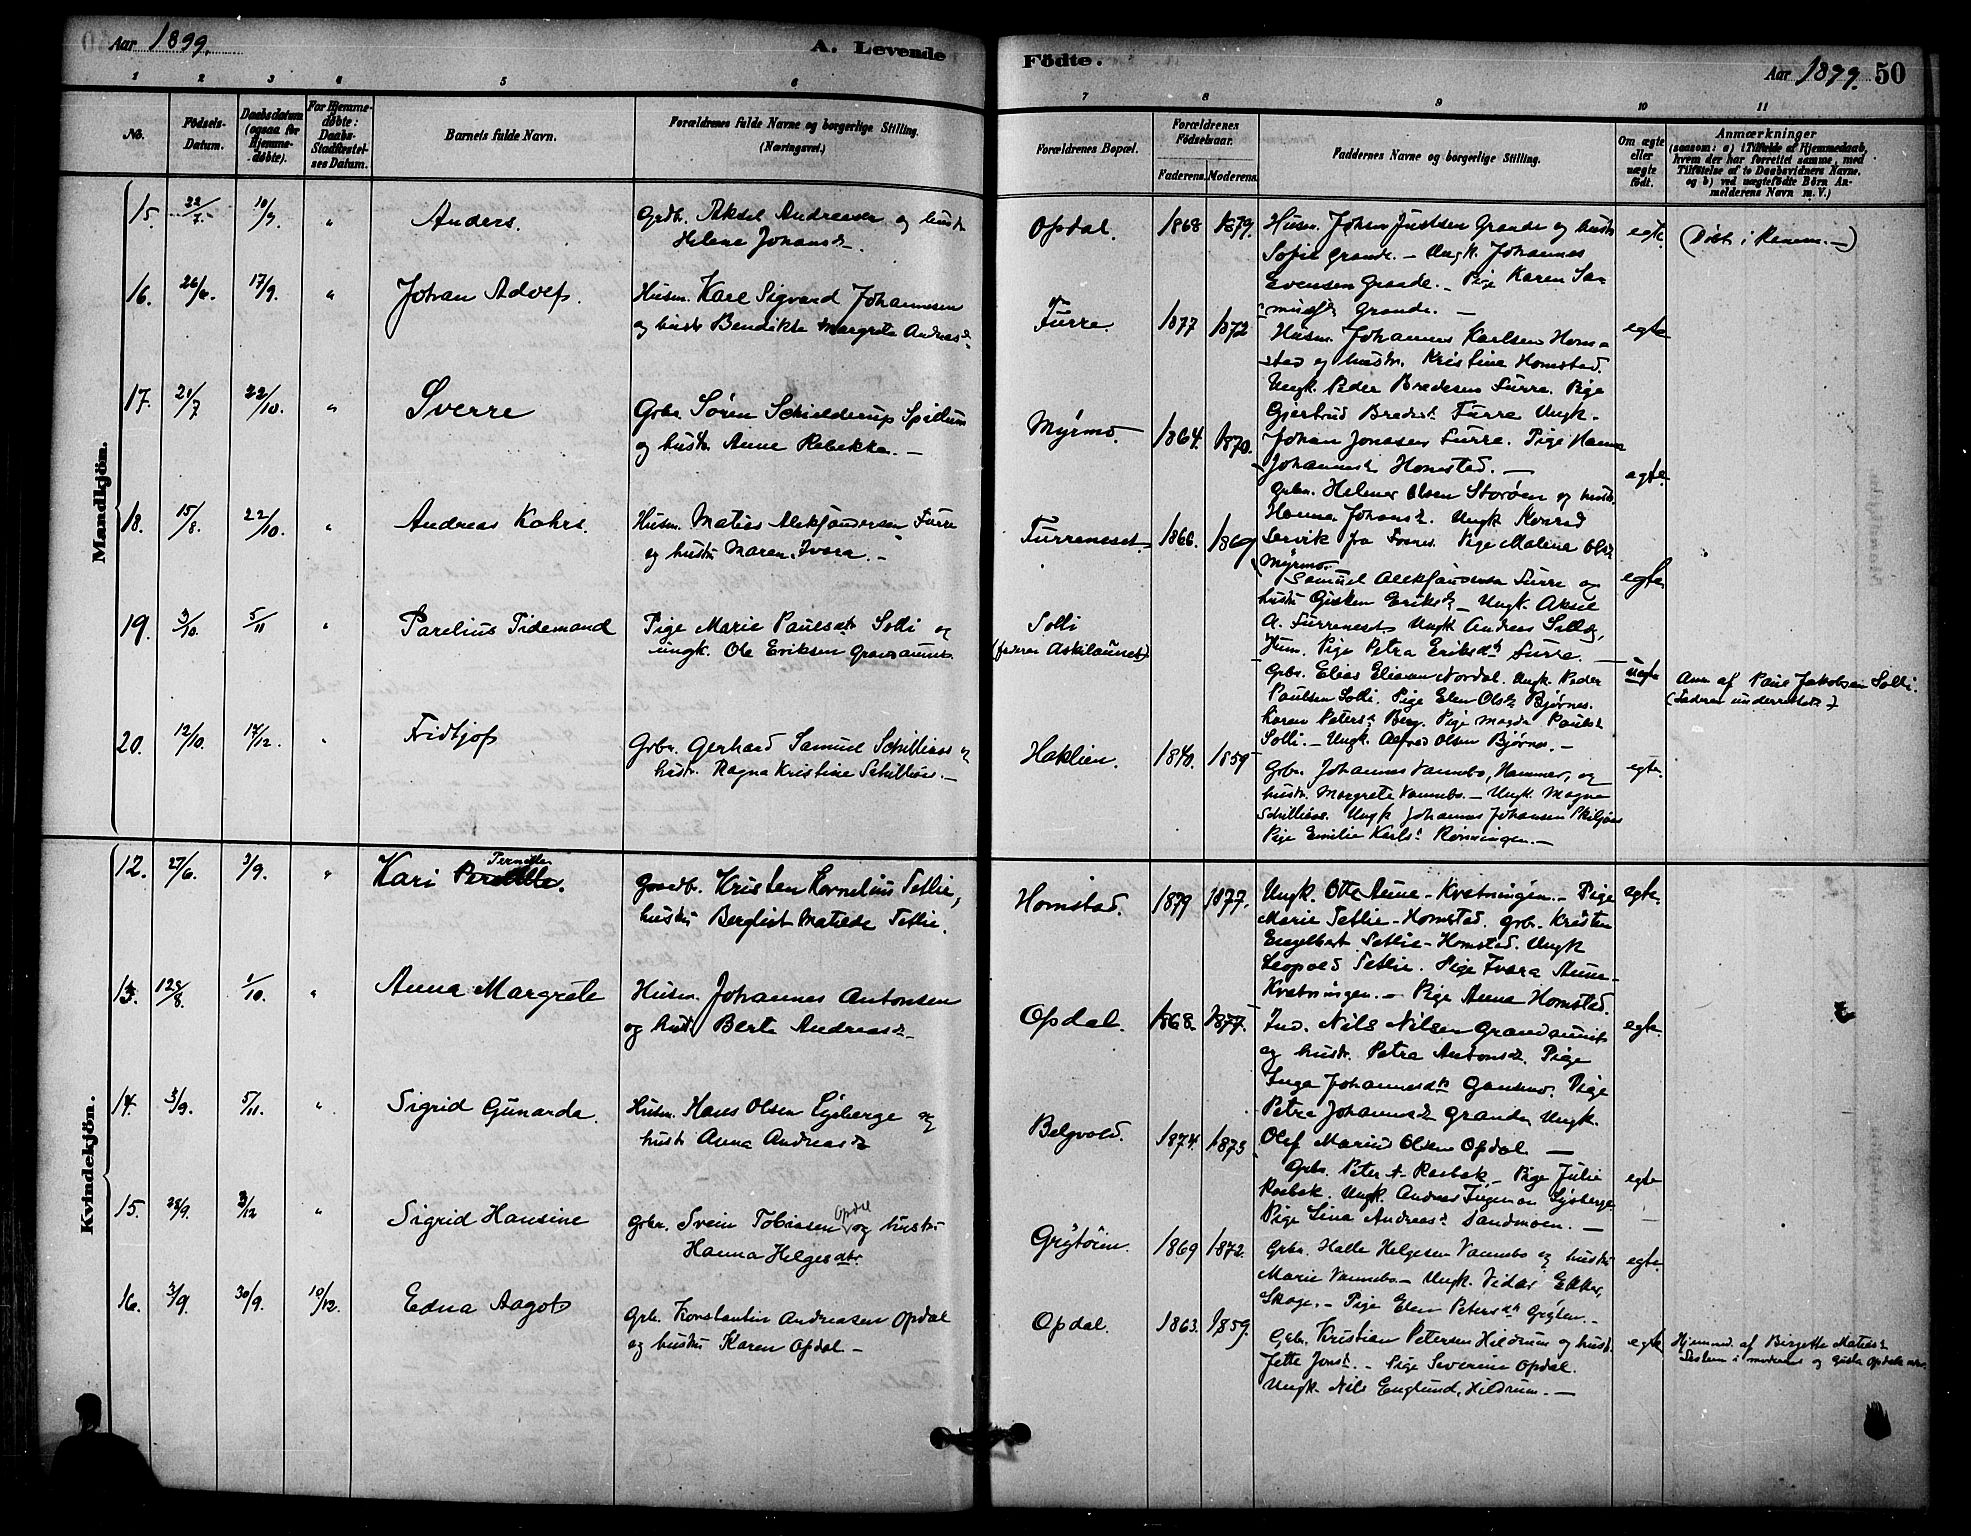 Aar 1899.
A. Levende
Födte.
Aar 1899. 50
1 2 3 4 5 6 7 8 9 10 11
No.
Födsels-
Datum.
Daabsdatum
(ogsaa for
Hjemme-
døbte).
For Hjemme-
døbte:
Daabs-
Stadfæstel-
ses Datum.
Barnets fulde Navn.
Forældrenes fulde Navne og borgerlige Stilling.
(Næringsvei.)
Forældrenes Bopæl.
Forældrenes
Födselsaar.
Faderens. Moderens.
Faddernes Navne og borgerlige Stilling.
Om ægte
eller
uægte
født.
Anmærkninger
(saasom: a) i Tilfælde af Hjemmedaab,
hvem der har forrettet samme, med
Tilföielse af to Daabsvidners Navne,
og b) ved uægtefödte Börn An-
melderens Navn m. V.)
Mandkjön.
15. 22/7. 10/9. " Anders.
Grdb. Aksel Andreasen og hustr.
Helene Johansd.
Opdal. 1868 1879.
Husm. Johan Justsen Grande og hustr.
Sofie Grande. – Ungk. Johannes
Evensen Grande. – Pige Karen Sa-
muelsd. Grande. –
egte.
(Døbt i Ranem. –)
16. 26/6. 17/9. " Johan Adolf.
Husm. Karl Sigvard Johannesen
og hustr. Bendikte Margrete Andreasd.
Furre. 1877 1872
Husm. Johannes Karlsen Hom-
stad og hustr. Kristine Homstad.
Ungk. Peder Bredesen Furre. Pige
Gjertrud Bredesd. Furre Ungk.
Johan Jonasen Furre. Pige Hanna
Johannesd. Homstad. –
egte
17. 21/7 22/10. " Sverre
Grbr. Søren Schielderup Spillum
og hustr. Anne Rebekka. –
Myrmo. 1864. 1870.
Grbr. Helmer Olsen Storøen og hustr.
Hanna Johansd. Ungk. Konrad
Servik fra Fosnes. Pige Malene Olsd.
Myrmo.
egte.
18. 15/8. 22/10. " Andreas Kohrs.
Husm. Matias Aleksandersen Furre
og hustr. Maren Ivara. –
Furreneset. 1866. 1869
Samuel Aleksandersen Furre og
hustr. Gjertken Eriksd. – Ungk. Aksel
A. Furreneset. Ungk. Andreas
Hum. Pige Petra Eriksd. Furre. –
egte
19. 3/10. 5/11 " Parelius Tidemand
Pige Marie Paulsdt. Solli og
ungk. Ole Eriksen Grandaunet.
Solli
(faderen Asklaunet)
Grbr. Elias Eliasen Nordal. Ungk. Peder
Paulsen Solli. Pige Elen Olsd. Bjørnes.
Karen Petersd. Berg. Pige Magda Paulsd.
Solli. – Ungk. Alfred Olsen Bjørnes. –
uegte
Anm. af Paul Jakobsen Solli.
(Faderen underrettet.)
20. 12/10. 17/12. " Fridtjof
Grbr. Gerhard Samuel Schilliaas og
hustr. Ragna Kristine Schilliaas. –
Haklien. 1840. 1859
Grbr. Johannes Vannebo, Hammer, og
hustr. Margrete Vannebo. – Ungk. Magne
Schilliaas. Ungk. Johannes Johansen
Pige Emilie Karlsd. Rønningen. –
egte.
Kvindekjön.
12. 27/6. 3/9. " Kari Pernille.
Gaardb. Kristen Kornelius Setlie,
hustr. Bergliot Matilde Setlie.
Homstad. 1879 1877.
Ungk. Otto Aune – Kvatningen. – Pige
Marie Setlie – Homstad. Grbr. Kristen
Engelbert Setlie – Homstad. Ungk.
Leopold Setlie. Pige Ivara Aune –
Kvatningen. – Pige Anna Homstad.
egte.
13. 12/8. 1/10. " Anna Margrete
Husm. Johannes Antonsen
og hustr. Berte Andreasd.
Opdal. 1868. 1877.
Ind. Nils Nilsen Grandaunet
og hustr. Petra Antonsd. Pige
Inga Johannesdt. Ganesmo. Pige
Petra Johannesd. Grande. Ungk.
Olaf Marius Olsen Opdal –
egte.
14. 3/9. 5/11. " Sigrid Gunarda.
Husm. Hans Olsen Lysberge og
hustr. Anna Andreasd.
Belgvold. 1874. 1873
Grbr. Peter A. Rosbak. – Pige Julie
Rosbak. Ungk. Andreas Ingeman Lysberge
Pige Lina Andreasd. Sandmoen. –
egte
15. 28/9. 3/12 " Sigrid Hansine
Grbr. Svein Tobiasen Opdal og hustr.
Hanna Helgesdtr.
Grytøien. 1869 1872.
Grbr. Halle Helgesen Vannebo og hustr.
Marie Vannebo. – Ungk. Vidar Ekker,
Skage. – Pige Elen Petersdt. Grøten. –
egte.
16. 3/9. 30/9. 10/12. Edna Aagot
Grb. Konstantin Andreasen Opdal
og hustr. Karen Opdal –
Opdal. 1863. 1859.
Grb. Kristian Petersen Hildrum og hustr.
Jette Jonsd. – Pige Severine Opdal.
Ungk. Nils Englund, Hildrum. –
egte
Hjemmed. af Birgitte Matiasd.